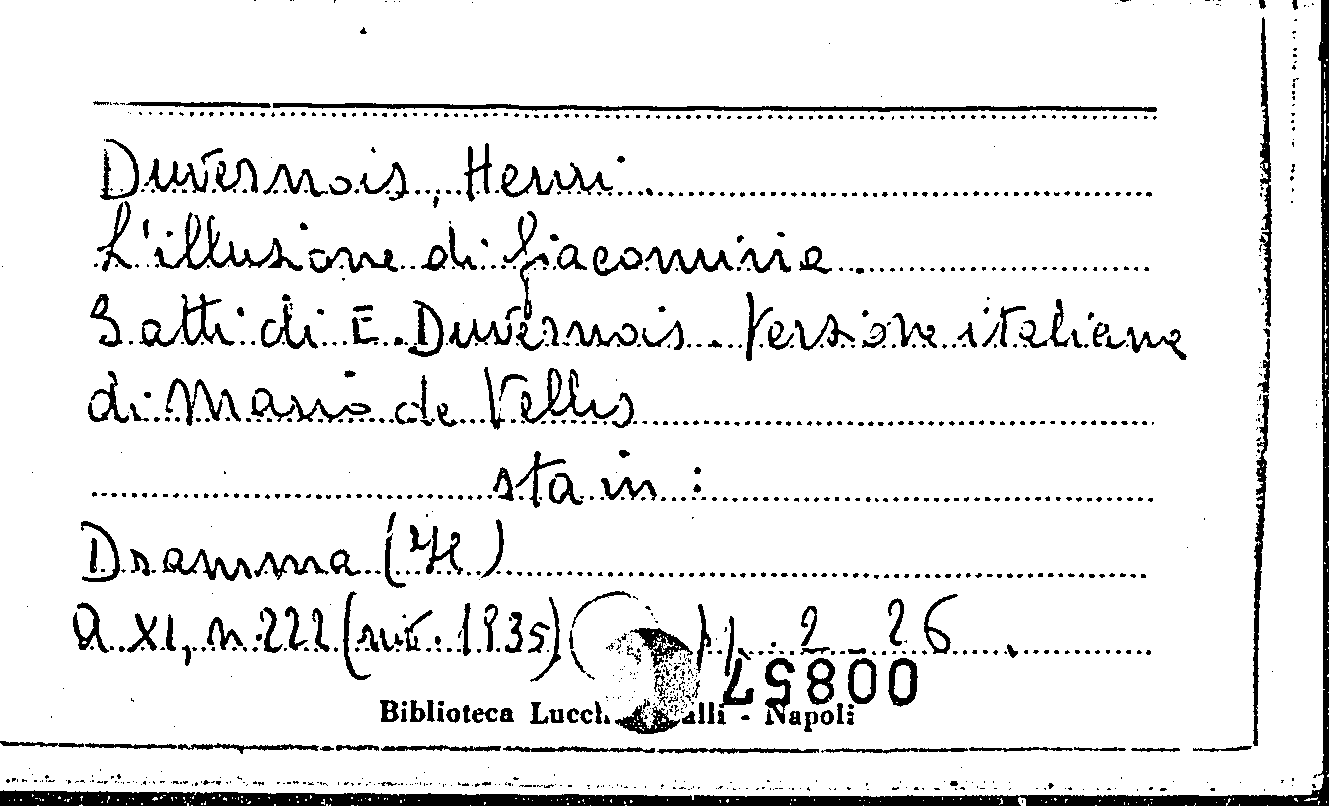 Duvernois, Henri.
L'illusione di Giacomina.
3 atti di E. Duvernois. Versione italiana
di Mario de Vellis
sta in:
Dramma (Il)
a. XI, n. 222 (nov. 1935) 2-26.
00857
Biblioteca Lucch alli - Napoli